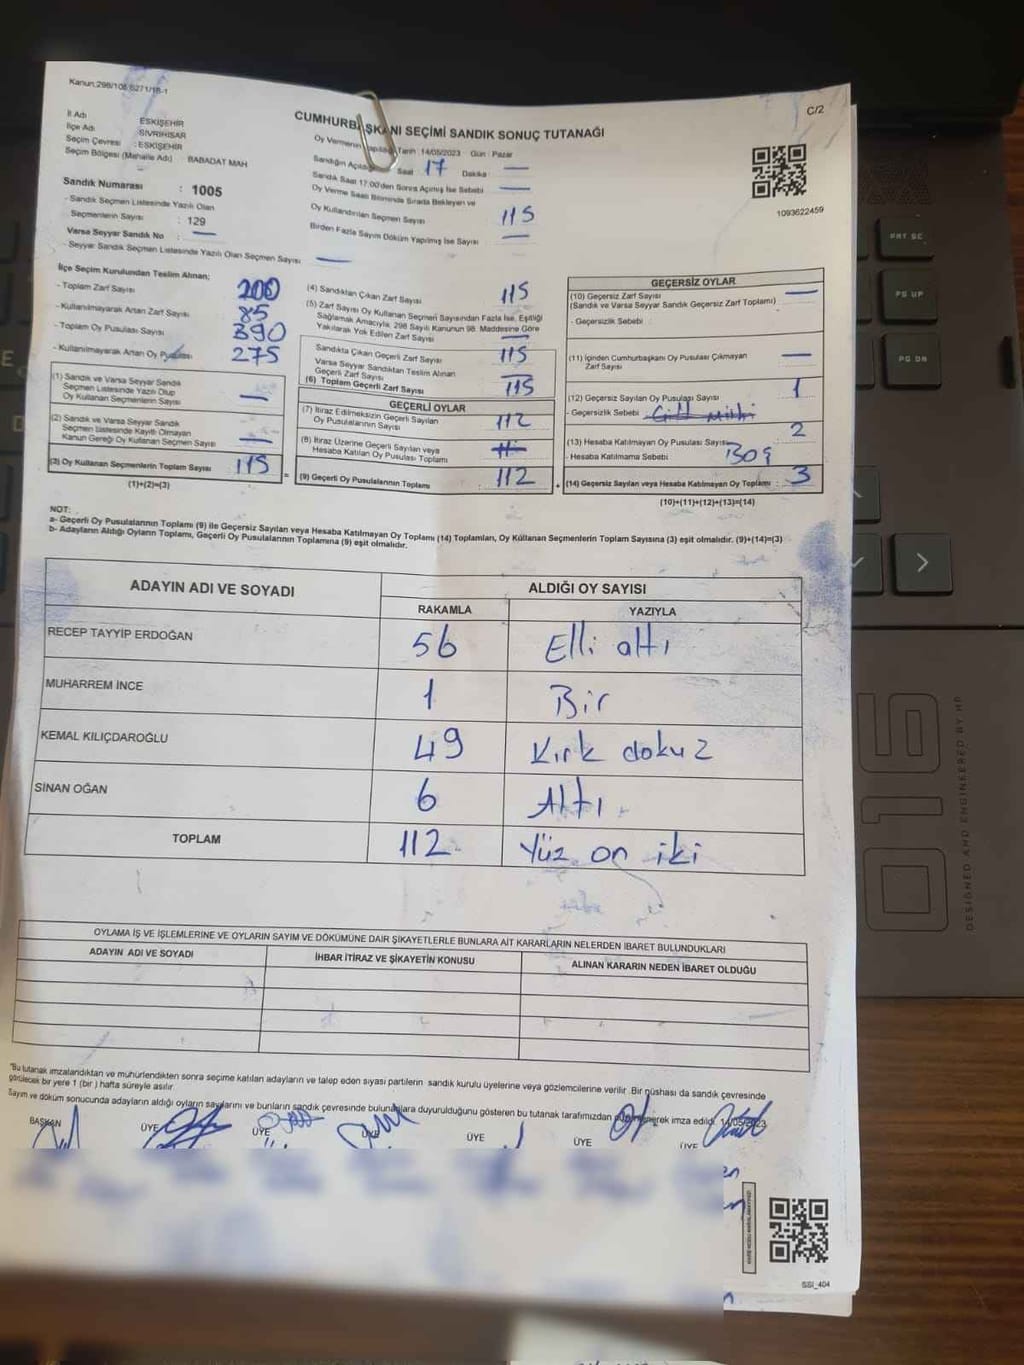 Kanun:298/108,6271/18-1
C/2
CUMHURBAŞKANI SEÇİMİ SANDIK SONUÇ TUTANAĞI
İl Adı : ESKİŞEHİR
İlçe Adı : SİVRİHİSAR
Seçim Çevresi : ESKİŞEHİR
Seçim Bölgesi (Mahalle Adı) : BABADAT MAH
Sandık Numarası : 1005
- Sandık Seçmen Listesinde Yazılı Olan
Seçmenlerin Sayısı : 129
Varsa Seyyar Sandık No : —
- Seyyar Sandık Seçmen Listesinde Yazılı Olan Seçmen Sayısı —
Oy Vermenin Tarih : 14/05/2023 Gün : Pazar
Sandığın Açıldığı Saat 17 Dakika : —
Sandık Saat 17:00'den Sonra Açılmış İse Sebebi —
Oy Verme Saati Bitiminde Sırada Bekleyen ve
Oy Kullandırılan Seçmen Sayısı 115
Birden Fazla Sayım Döküm Yapılmış İse Sayısı —
1093622459
İlçe Seçim Kurulundan Teslim Alınan:
- Toplam Zarf Sayısı 200
- Kullanılmayarak Artan Zarf Sayısı 85
- Toplam Oy Pusulası Sayısı 390
- Kullanılmayarak Artan Oy Pusulası 275
(1) Sandık ve Varsa Seyyar Sandık
Seçmen Listesinde Yazılı Olup
Oy Kullanan Seçmenlerin Sayısı —
(2) Sandık ve Varsa Seyyar Sandık
Seçmen Listesinde Kayıtlı Olmayan
Kanun Gereği Oy Kullanan Seçmen Sayısı —
(3) Oy Kullanan Seçmenlerin Toplam Sayısı 115
(1)+(2)=(3)
(4) Sandıktan Çıkan Zarf Sayısı 115
(5) Zarf Sayısı Oy Kullanan Seçmen Sayısından Fazla İse, Eşitliği
Sağlamak Amacıyla, 298 Sayılı Kanunun 98. Maddesine Göre
Yakılarak Yok Edilen Zarf Sayısı —
Sandıkta Çıkan Geçerli Zarf Sayısı 115
Varsa Seyyar Sandıktan Teslim Alınan
Geçerli Zarf Sayısı —
(6) Toplam Geçerli Zarf Sayısı 115
GEÇERLİ OYLAR
(7) İtiraz Edilmeksizin Geçerli Sayılan
Oy Pusulalarının Sayısı 112
(8) İtiraz Üzerine Geçerli Sayılan veya
Hesaba Katılan Oy Pusulası Toplamı
(9) Geçerli Oy Pusulalarının Toplamı 112
GEÇERSİZ OYLAR
(10) Geçersiz Zarf Sayısı —
(Sandık ve Varsa Seyyar Sandık Geçersiz Zarf Toplamı)
- Geçersizlik Sebebi :
(11) İçinden Cumhurbaşkanı Oy Pusulası Çıkmayan
Zarf Sayısı —
(12) Geçersiz Sayılan Oy Pusulası Sayısı 1
- Geçersizlik Sebebi
(13) Hesaba Katılmayan Oy Pusulası Sayısı 2
- Hesaba Katılmama Sebebi Boş
(14) Geçersiz Sayılan veya Hesaba Katılmayan Oy Toplamı : 3
(10)+(11)+(12)+(13)=(14)
NOT:
a- Geçerli Oy Pusulalarının Toplamı (9) ile Geçersiz Sayılan veya Hesaba Katılmayan Oy Toplamı (14) Toplamları, Oy Kullanan Seçmenlerin Toplam Sayısına (3) eşit olmalıdır. (9)+(14)=(3)
b- Adayların Aldığı Oyların Toplamı, Geçerli Oy Pusulalarının Toplamına (9) eşit olmalıdır.
ADAYIN ADI VE SOYADI ALDIĞI OY SAYISI
RAKAMLA YAZIYLA
RECEP TAYYİP ERDOĞAN 56 Elli altı
MUHARREM İNCE 1 Bir
KEMAL KILIÇDAROĞLU 49 Kırk dokuz
SİNAN OĞAN 6 Altı
TOPLAM 112 Yüz on iki
OYLAMA İŞ VE İŞLEMLERİNE VE OYLARIN SAYIM VE DÖKÜMÜNE DAİR ŞİKAYETLERLE BUNLARA AİT KARARLARIN NELERDEN İBARET BULUNDUKLARI
ADAYIN ADI VE SOYADI İHBAR İTİRAZ VE ŞİKAYETİN KONUSU ALINAN KARARIN NEDEN İBARET OLDUĞU
*Bu tutanak imzalandıktan ve mühürlendikten sonra seçime katılan adayların ve talep eden siyasi partilerin sandık kurulu üyelerine veya gözlemcilerine verilir. Bir nüshası da sandık çevresinde
görülecek bir yere 1 (bir) hafta süreyle asılır.
Sayım ve döküm sonucunda adayların aldığı oyların sayılarını ve bunların sandık çevresinde bulunanlara duyurulduğunu gösteren bu tutanak tarafımızdan imza edildi. 14/05/2023
BAŞKAN ÜYE ÜYE ÜYE ÜYE ÜYE ÜYE
SSI_404
PRT SC
PG UP
PG DN
DESIGNED AND ENGINEERED BY HP